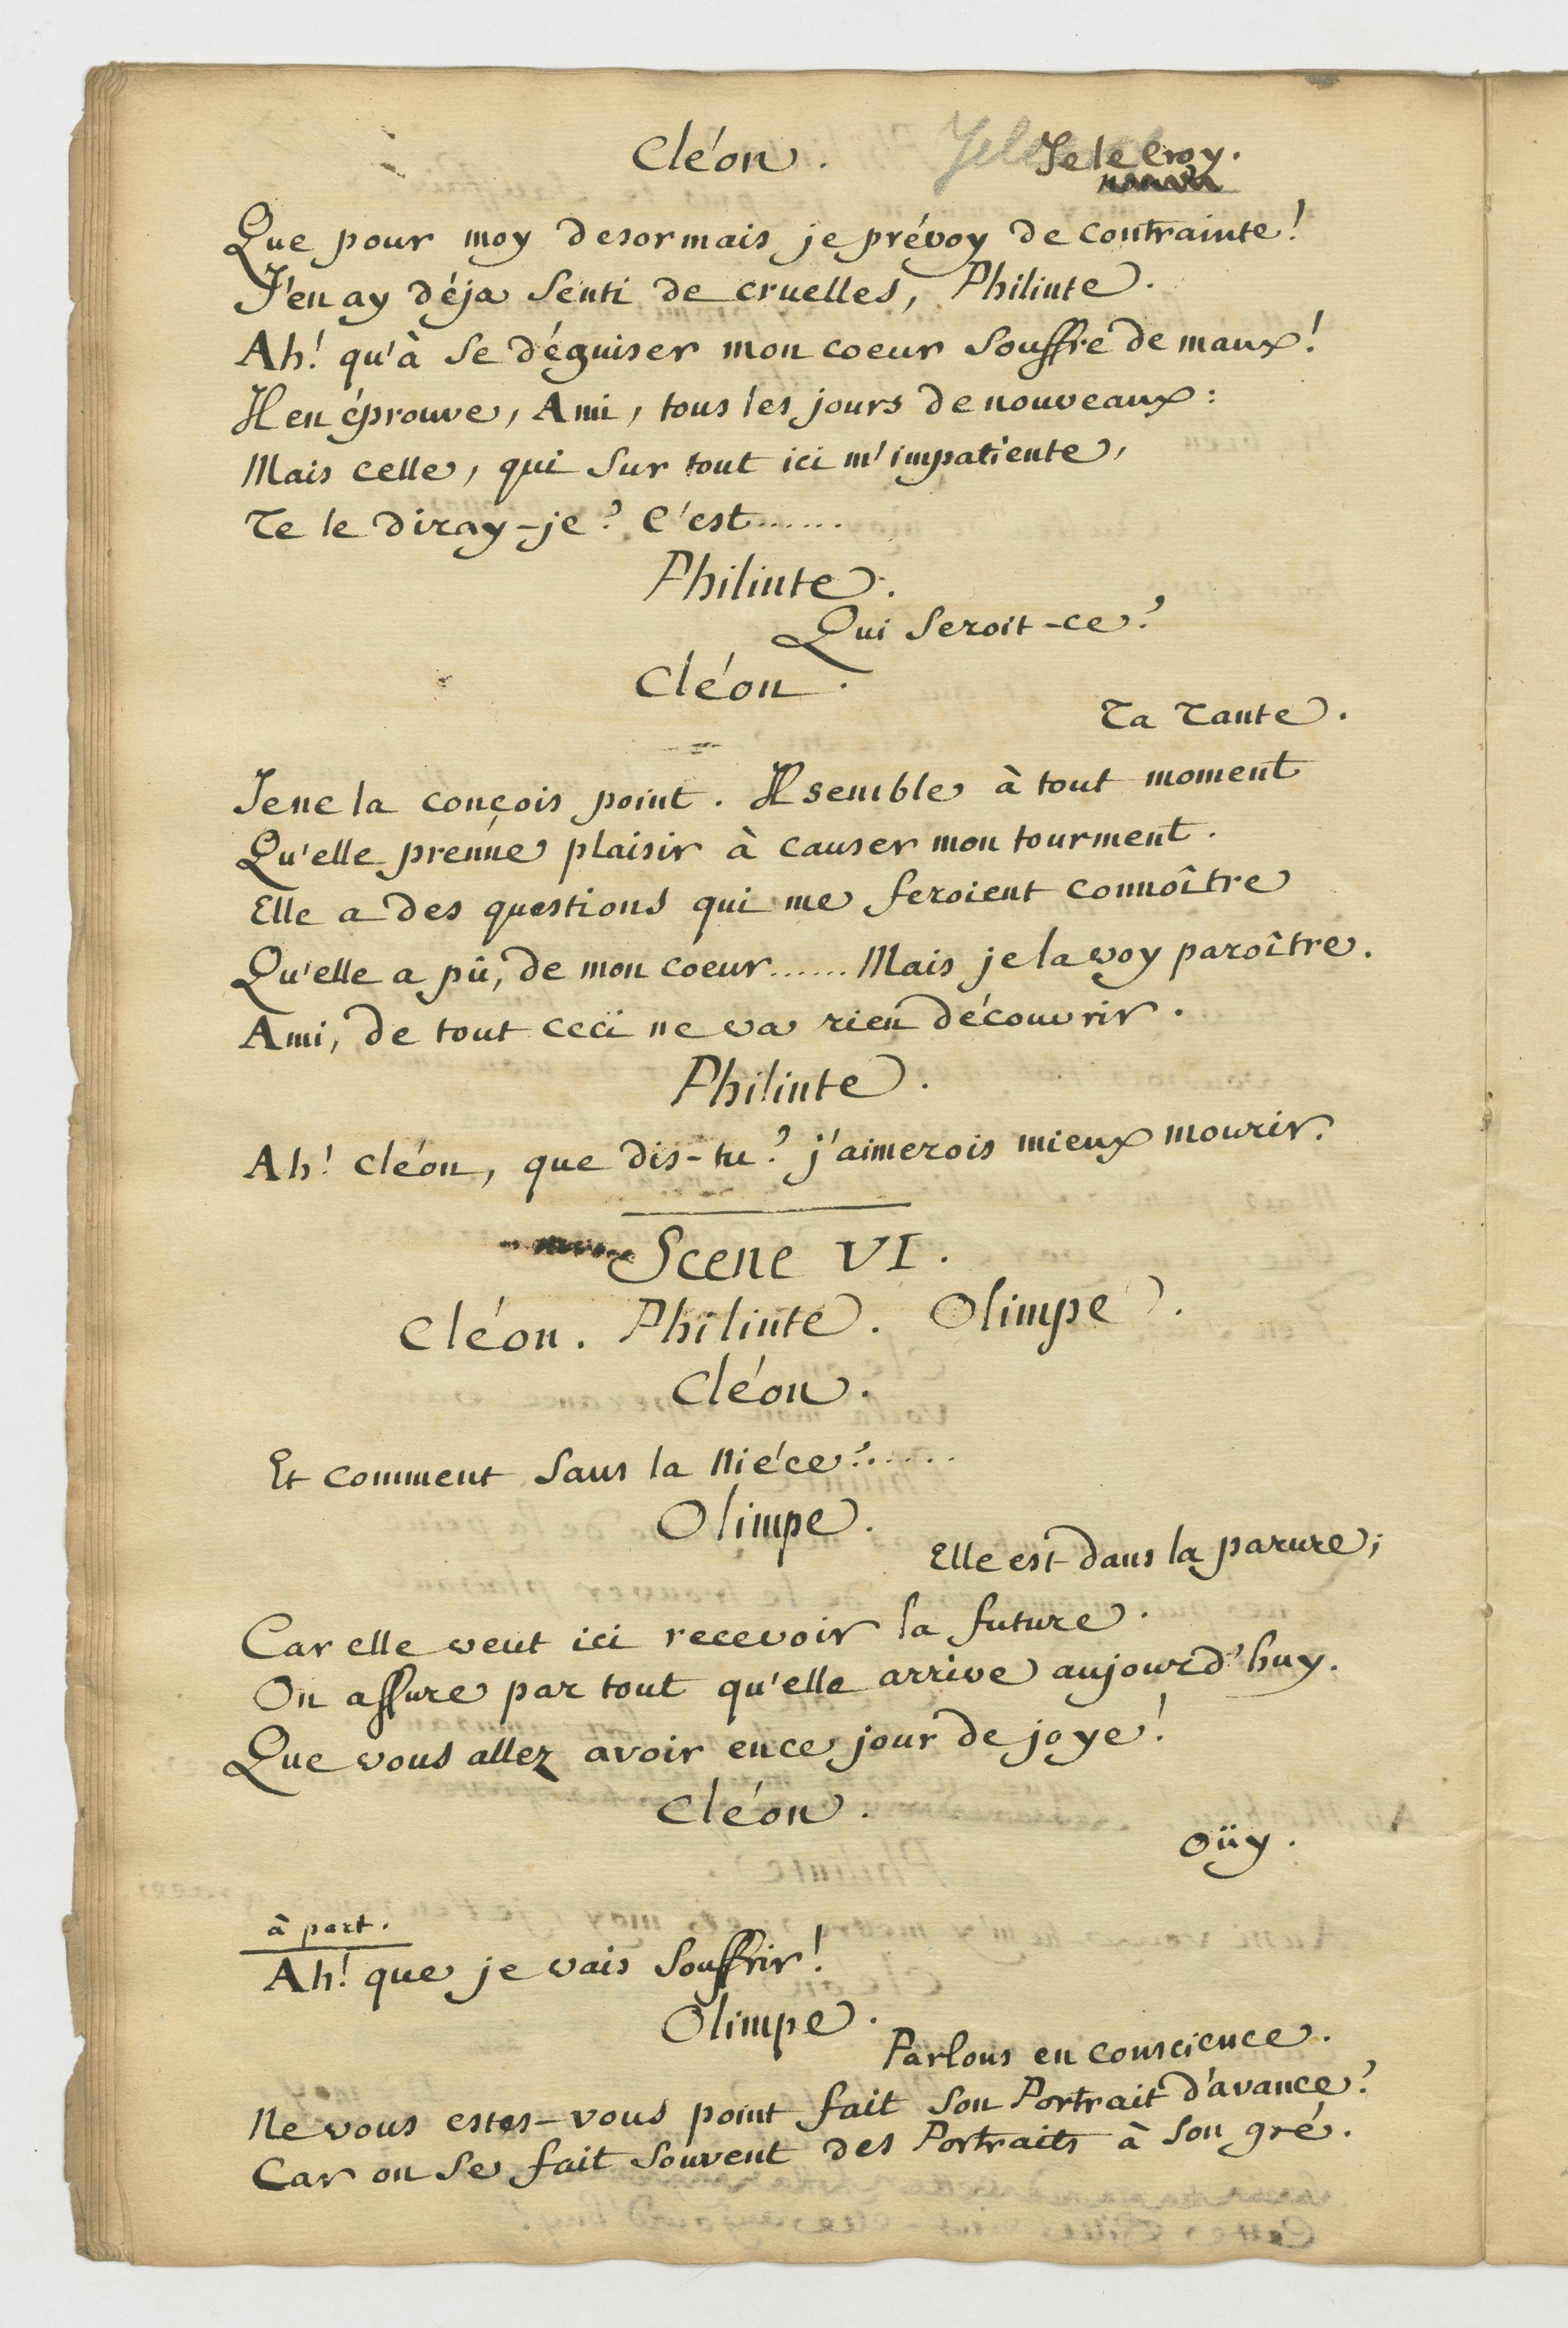 Cléon.
Je le croy.
Que pour moy desormais je prévoy de contrainte!
J'en ay déja senti de cruelles, Philinte.
Ah! qu'à se déguiser mon coeur souffre de maux!
Il en éprouve, Ami, tous les jours de nouveaux:
Mais celle, qui sur tout ici m'impatiente,
Te le diray-je? C'est......
Philinte.
Qui seroit-ce?
Cléon.
Ta Tante.
Je ne la conçois point. Il semble à tout moment
Qu'elle prenne plaisir à causer mon tourment.
Elle a des questions qui me feroient connoître
Qu'elle a pû, de mon coeur...... Mais je la voy paroître.
Ami, de tout ceci ne va rien découvrir.
Philinte.
Ah! Cléon, que dis-tu? j'aimerois mieux mourir.
Scene VI.
Cléon. Philinte. Olimpe.
Cléon.
Et comment sans la Niéce?......
Olimpe.
Elle est dans la parure;
Car elle veut ici recevoir la future.
On assure par tout qu'elle arrive aujourd'huy.
Que vous allez avoir en ce jour de joye!
Cléon.
Oüy.
à part.
Ah! que je vais souffrir!
Olimpe.
Parlons en conscience.
Ne vous estes-vous point fait son Portrait d'avance?
Car on se fait souvent des Portraits à son gré.